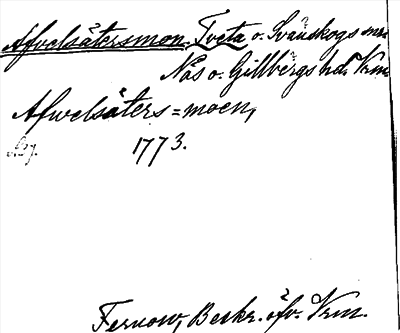 Afvelsätersmon Tveta o. Svanskogs snr
Näs o. Gillbergs hd. Vrm
Afwelsäters=moen,
1773.
Fernow, Beskr. öfv. Vrm.